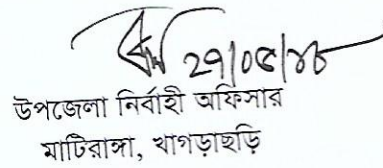 ২৭/০৫/১৮
উপজেলা নির্বাহী অফিসার
মাটিরাঙ্গা, খাগড়াছড়ি